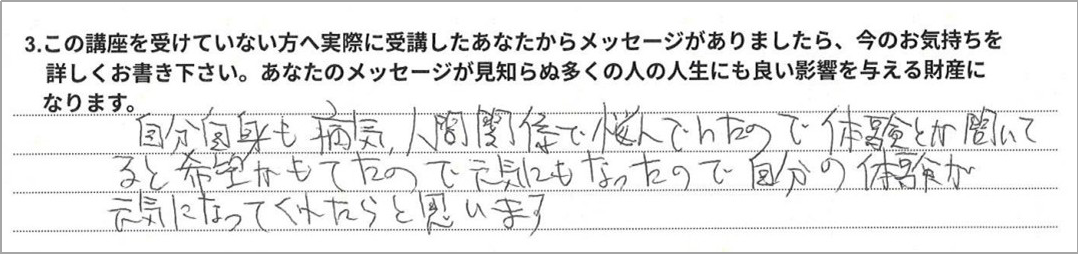 3.この講座を受けていない方へ実際に受講したあなたからメッセージがありましたら、今のお気持ちを
詳しくお書き下さい。あなたのメッセージが見知らぬ多くの人の人生にも良い影響を与える財産に
なります。
自分自身も病気、人間関係で悩んでいたので体験とか聞いて
ると希望がもてたので元気にもなったので自分の体験が
元気になってくれたらと思います